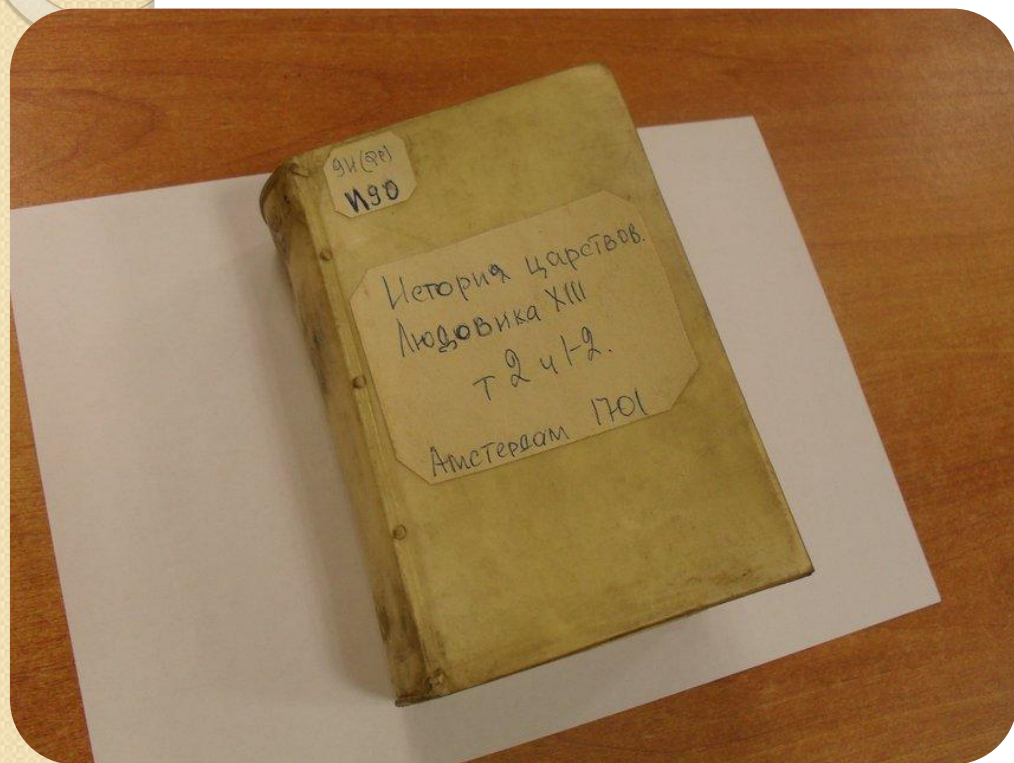 9И(Фр)
И90
История царствов.
Людовика XIII
т 2 ч 1-2.
Амстердам 1701